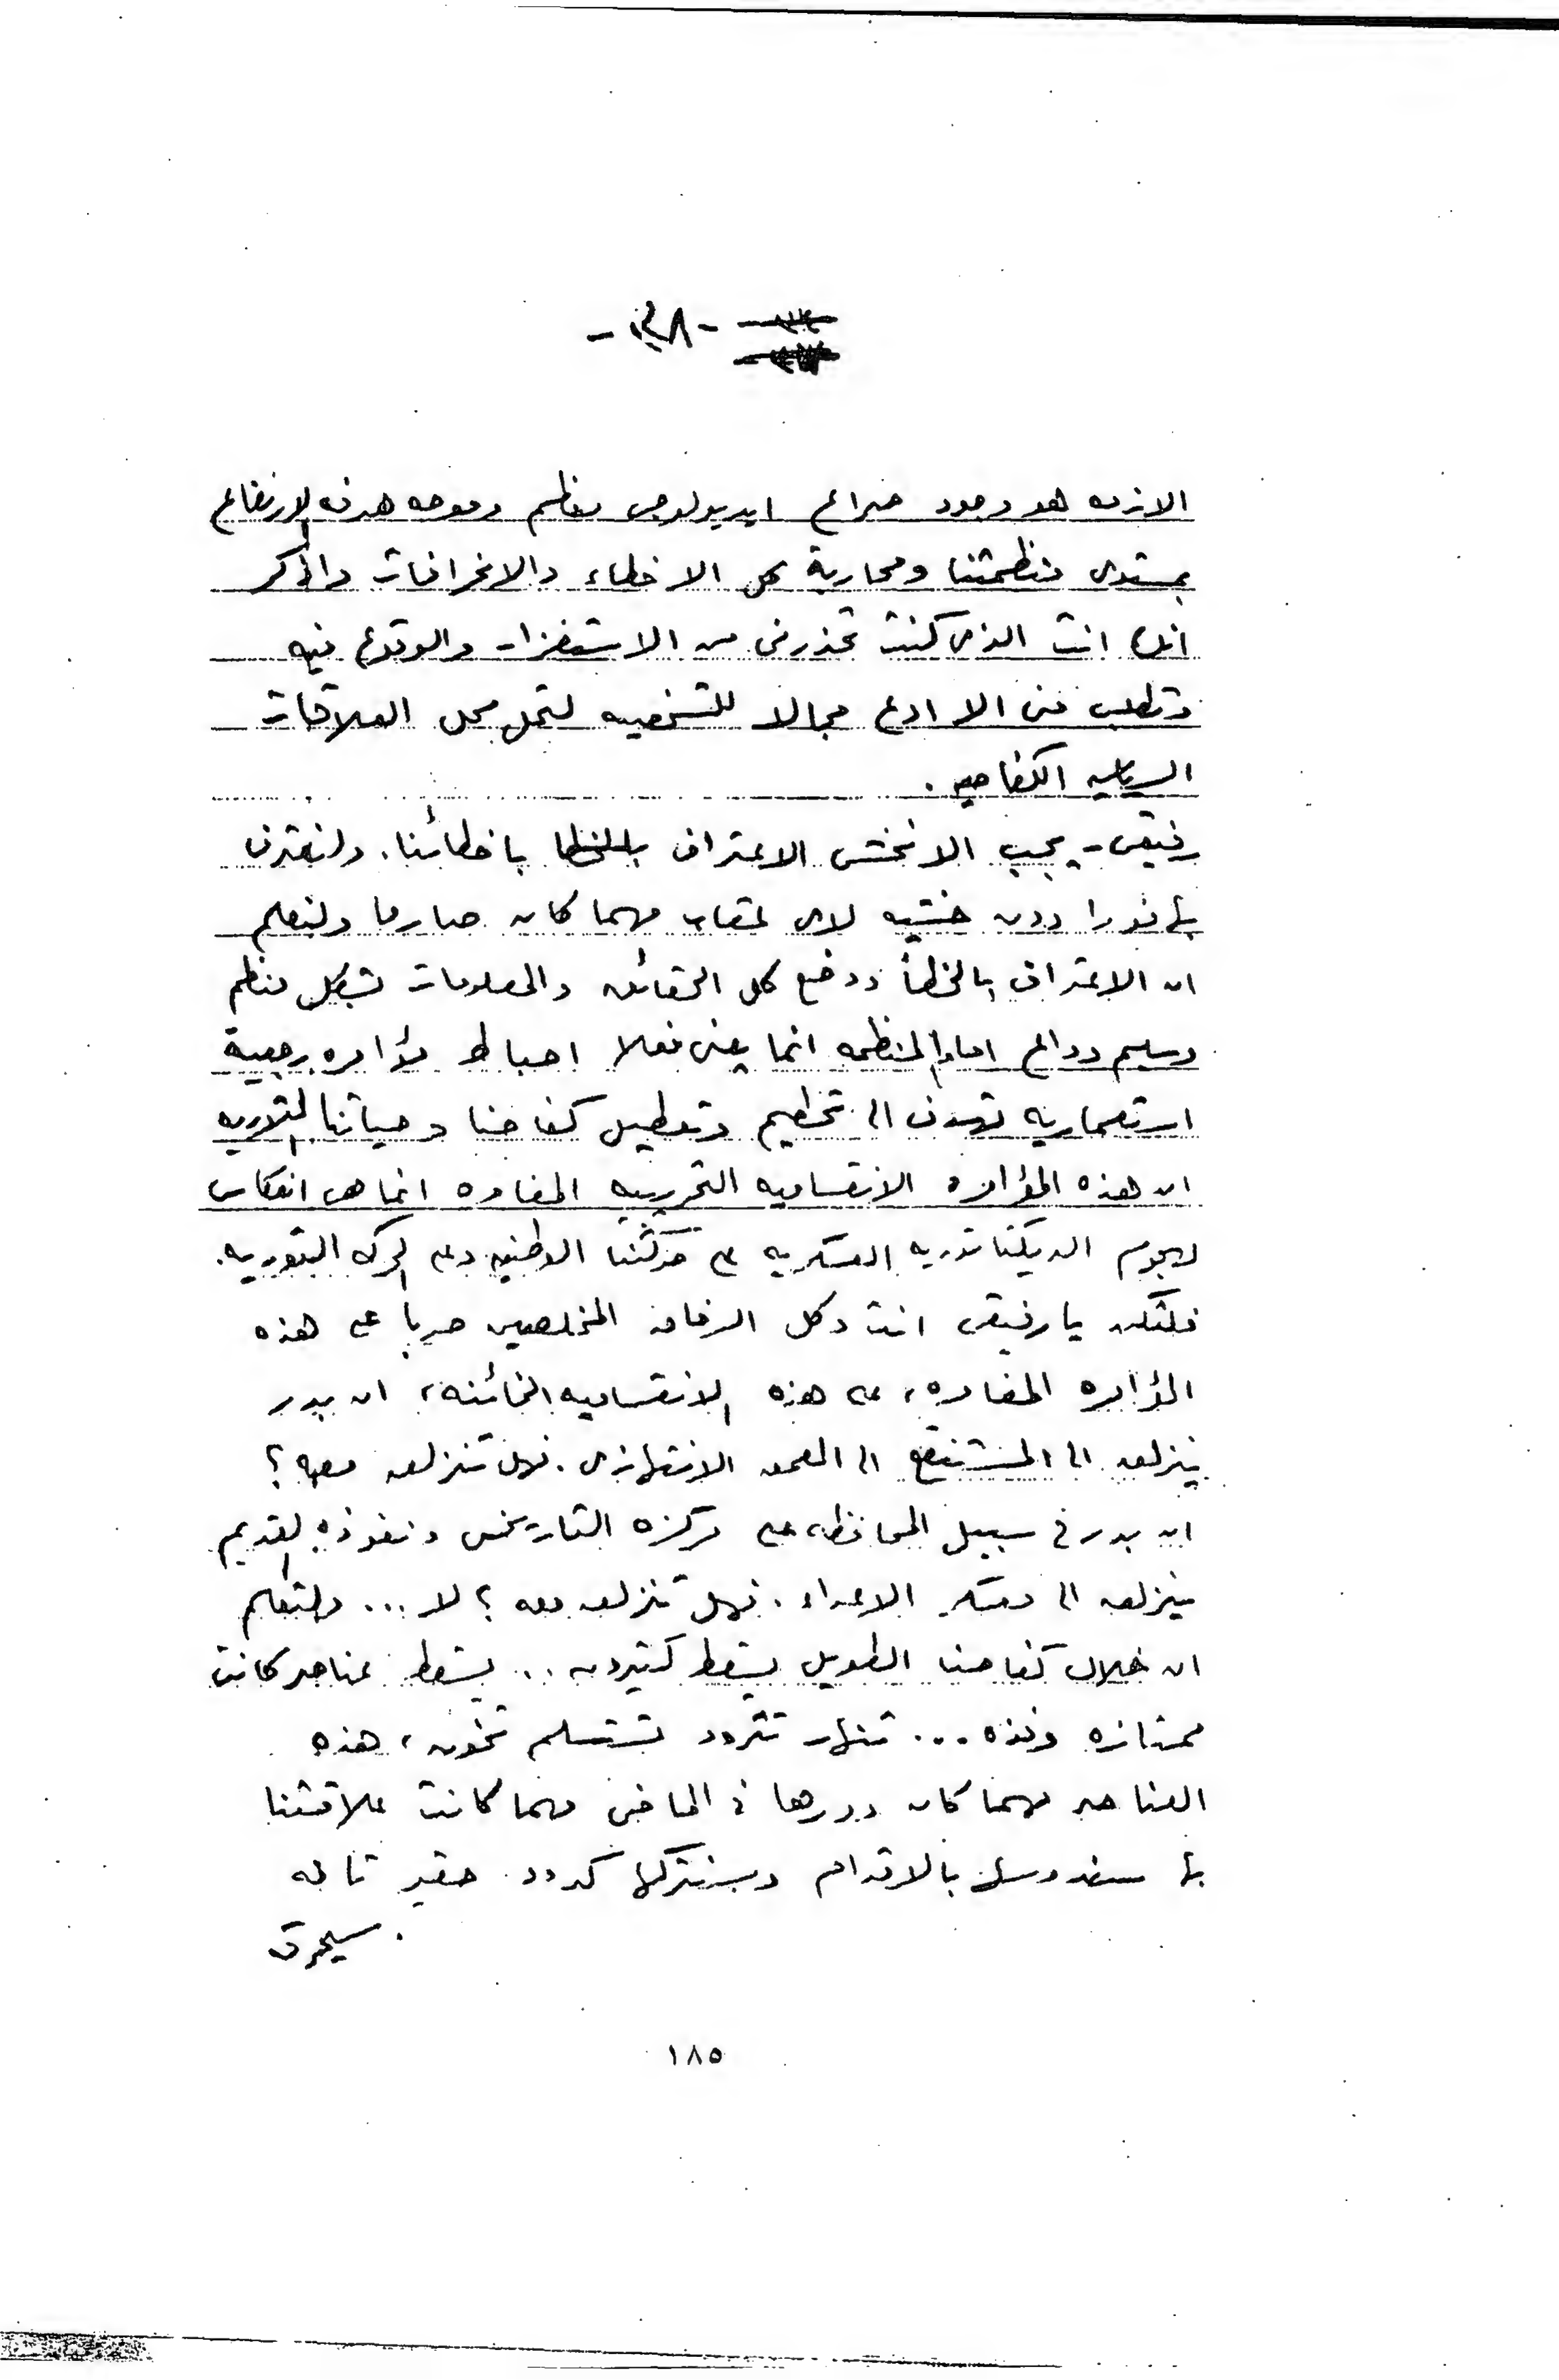 - ١٣٨ -
الازمه هو وجود صراع ايديولوجى منظم وموجه هدفه الارتفاع
بمستوى منظمتنا ومحاربة كل الاخطاء والانحرافات واذكر
انك انت الذى كنت تحذرنى من الاستفزاز والوقوع فيه
وتطلب منى الا ادع مجالا للشخصيه لتحل محل العلاقات
السياسيه الكفاحيه .
رفيقى - يجب الا نخشى الاعتراف بالخطأ باخطائنا. ولنعترف
بها فورا دون خشيه لاى عقاب مهما كان صارما ولنعلم
ان الاعتراف بالخطأ ووضع كل الحقائق والمعلومات بشكل منظم
وسليم وواع امام المنظمه انما يعنى فعلا احباط مؤامره رجعية
استعماريه تهدف الى تحطيم وتعطيل كفاحنا وحياتنا الثوريه
ان هذه المؤامره الانقساميه التخريبيه المغامره انما هى انعكاس
لهجوم الديكتاتوريه العسكريه على حركتنا الوطنيه وعلى الحركه الثوريه.
فلتكن يا رفيقى انت وكل الرفاق المخلصين حربا على هذه
المؤامره المغامره، على هذه الانقساميه الخائنه، ان بدر
ينزلق الى المستنقع الى العمق الانتهازى. فهل تنزلق معه ؟
ان بدر فى سبيل المحافظه على مركزه التاريخى ونفوذه القديم
ينزلق الى معسكر الاعداء . فهل تنزلق معه ؟ لا ... ولتعلم
ان خلال كفاحنا الطويل يسقط كثيرون .. يسقط عناصر كانت
ممتازه وفذه ... تنهار تتردد تستسلم تخون، هذه
العناصر مهما كان دورها فى الماضى مهما كانت علاقتنا
بها سندوسها بالاقدام وسنتركها كدود حقير تافه
سيحرق
١٨٥